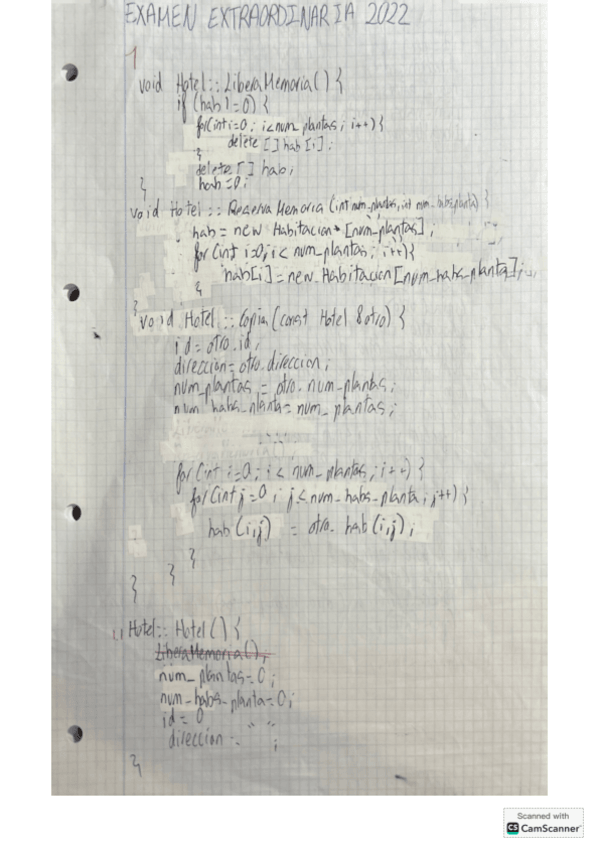 EXAMEN EXTRAORDINARIA 2022
1
void Hotel::LiberaMemoria(){
if (hab!=0){
for(int i=0; i<num_plantas; i++){
delete []hab[i];
}
delete[] hab;
hab=0;
}
void Hotel::ReservaMemoria(int num_plantas, int num_habs_planta){
hab=new Habitacion*[num_plantas];
for(int i=0; i< num_plantas; i++){
hab[i]=new Habitacion[num_habs_planta];
}
}
void Hotel::Copia(const Hotel &otro){
id=otro.id;
direccion=otro.direccion;
num_plantas = otro.num_plantas;
num_habs_planta=num_plantas;
for(int i=0; i< num_plantas; i++){
for(int j=0; j<num_habs_planta; j++){
hab(i,j) = otro.hab(i,j);
}
}
}
Hotel::Hotel(){
LiberaMemoria();
num_plantas=0;
num_habs_planta=0;
id=0
direccion = " ";
}
Scanned with
CS CamScanner